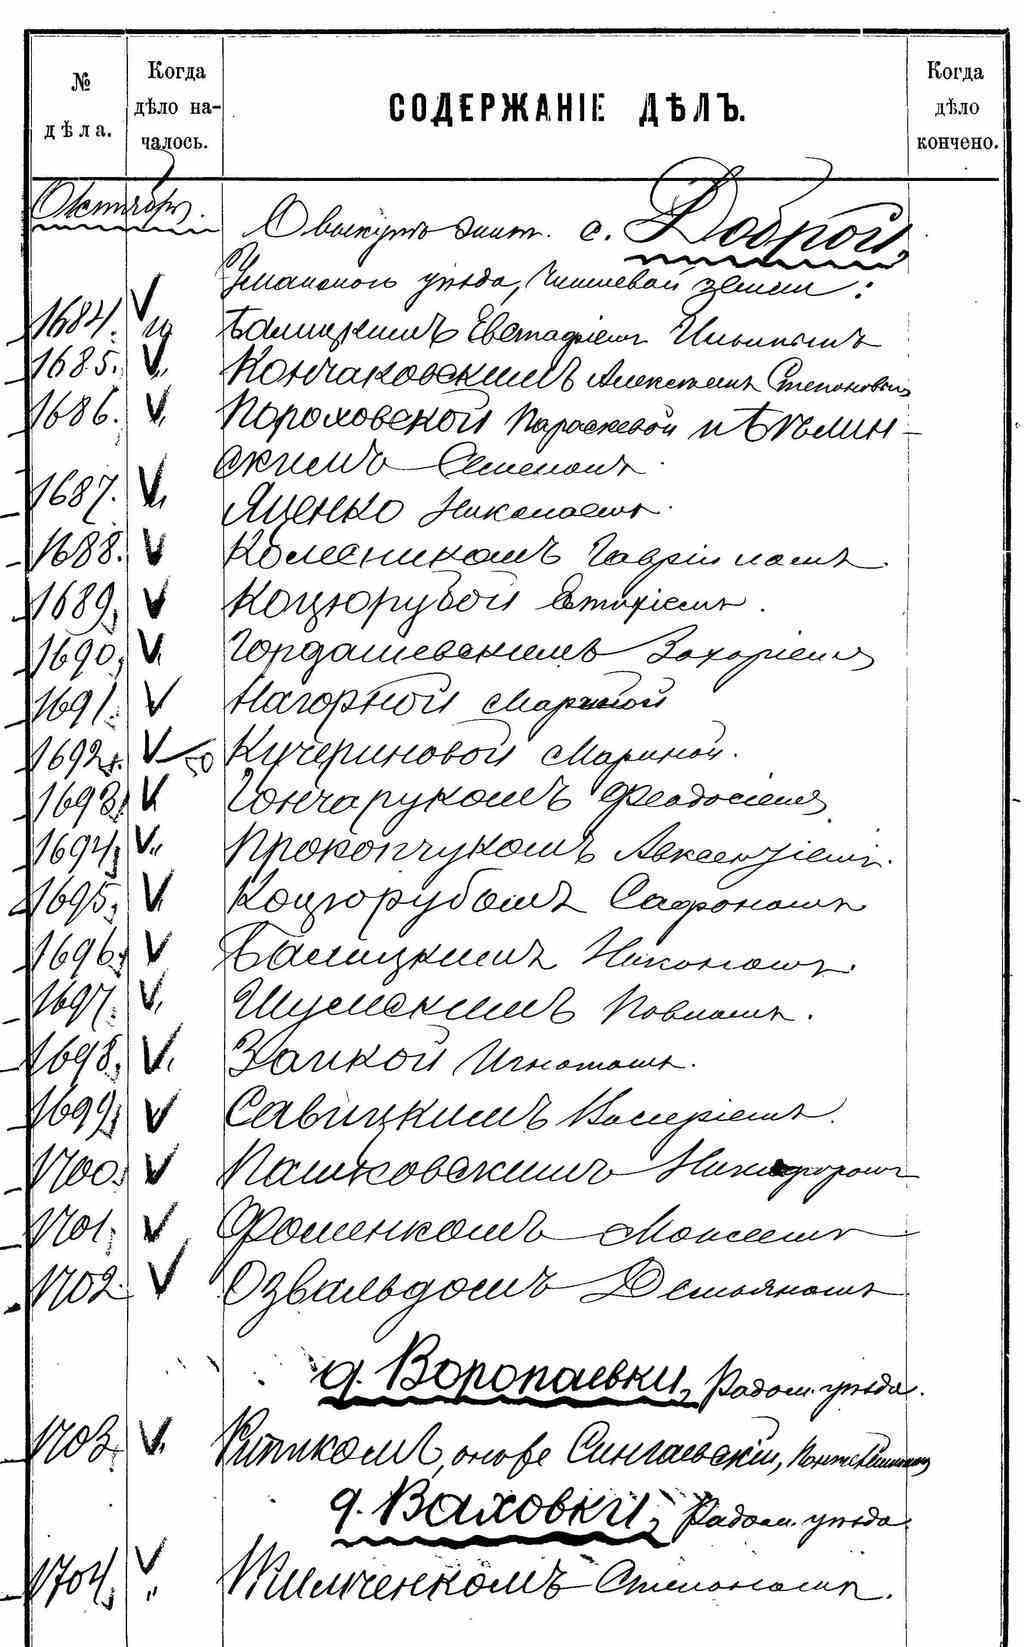 № дѣла.
Когда дѣло началось.
СОДЕРЖАНІЕ ДѢЛЪ.
Когда дѣло кончено.
Октябрь.
О выкупѣ с. Доброй,
Уманскаго уѣзда, Чиншевой земли:
1684. Бѣлицкимъ Евстафіемъ
1685. Кончаковскимъ Алексѣемъ Степановымъ
1686. Пороховской Параскевой и Бѣлин-
скимъ Семеномъ.
1687. Яценко Николаемъ.
1688. Колесникомъ Гавріиломъ.
1689. Коцюрубой Евтихіемъ.
1690. Гордашевскимъ Захаріемъ
1691. Нагорной Мариной
1692. 50 Кучериновой Мариной.
1693. Гончарукомъ Феодосіемъ
1694. Прокопчукомъ Авксентіемъ.
1695. Коцюрубомъ Сафономъ
1696. Балицкимъ Никономъ.
1697. Шумскимъ Павломъ.
1698. Заикой Игнатомъ.
1699. Савицкимъ Валеріемъ.
1700. Пашковскимъ Никифоромъ
1701. Фоменкомъ Моисеемъ
1702. Озвальдомъ Демьяномъ
д. Воропаевки, Радом. уѣзда.
1703. онъ же Сингаевскій,
д. Ваховки, Радом. уѣзда.
1704. Климченкомъ Степаномъ.